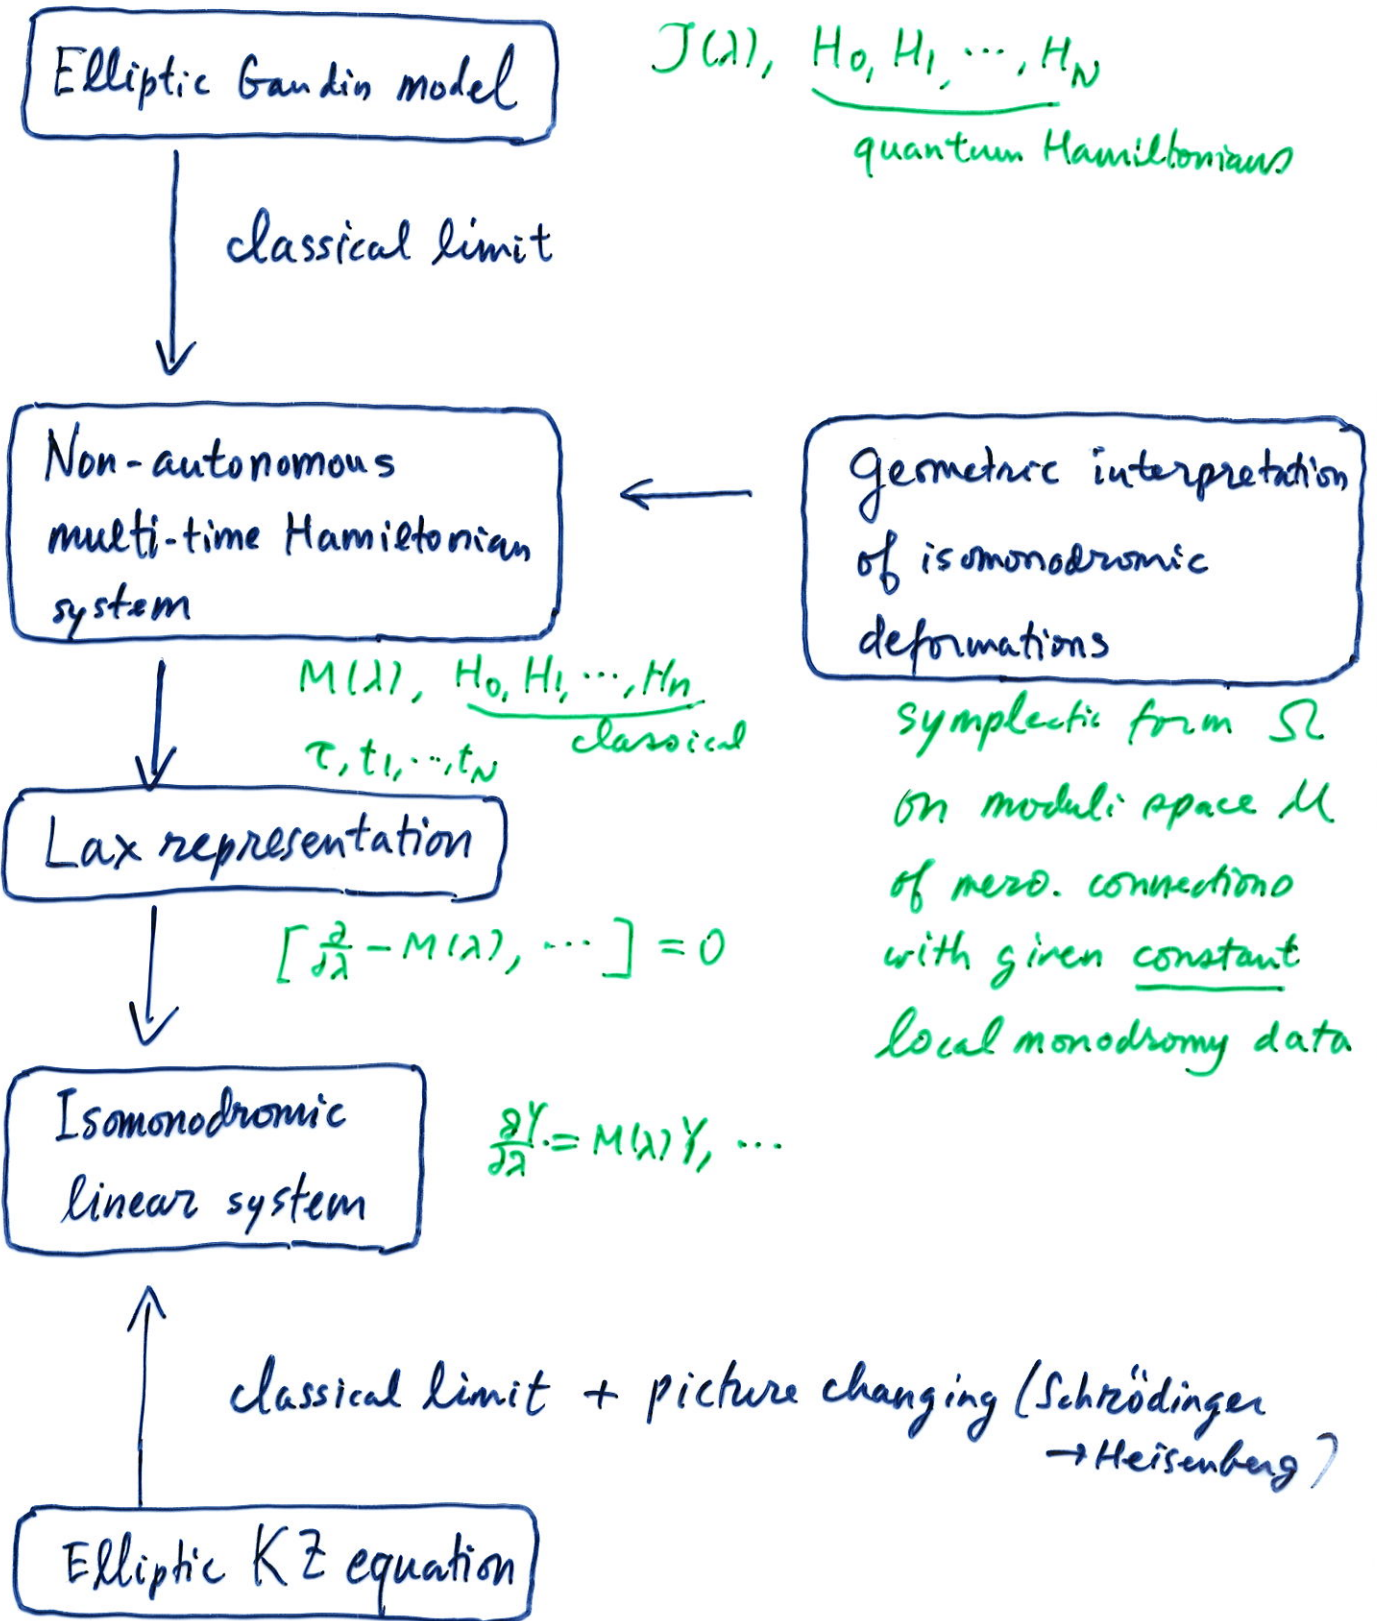 Elliptic Gaudin model
J(λ), H₀, H₁, ⋯, H_N
quantum Hamiltonians
classical limit
Non-autonomous
multi-time Hamiltonian
system
Geometric interpretation
of isomonodromic
deformations
M(λ), H₀, H₁, ⋯, Hₙ
classical
τ, t₁, ⋯, t_N
symplectic form Ω
on moduli space M
of mero. connections
with given constant
local monodromy data
Lax representation
[∂/∂λ − M(λ), ⋯ ] = 0
Isomonodromic
linear system
∂Y/∂λ = M(λ)Y, ⋯
classical limit + picture changing (Schrödinger
→ Heisenberg)
Elliptic KZ equation